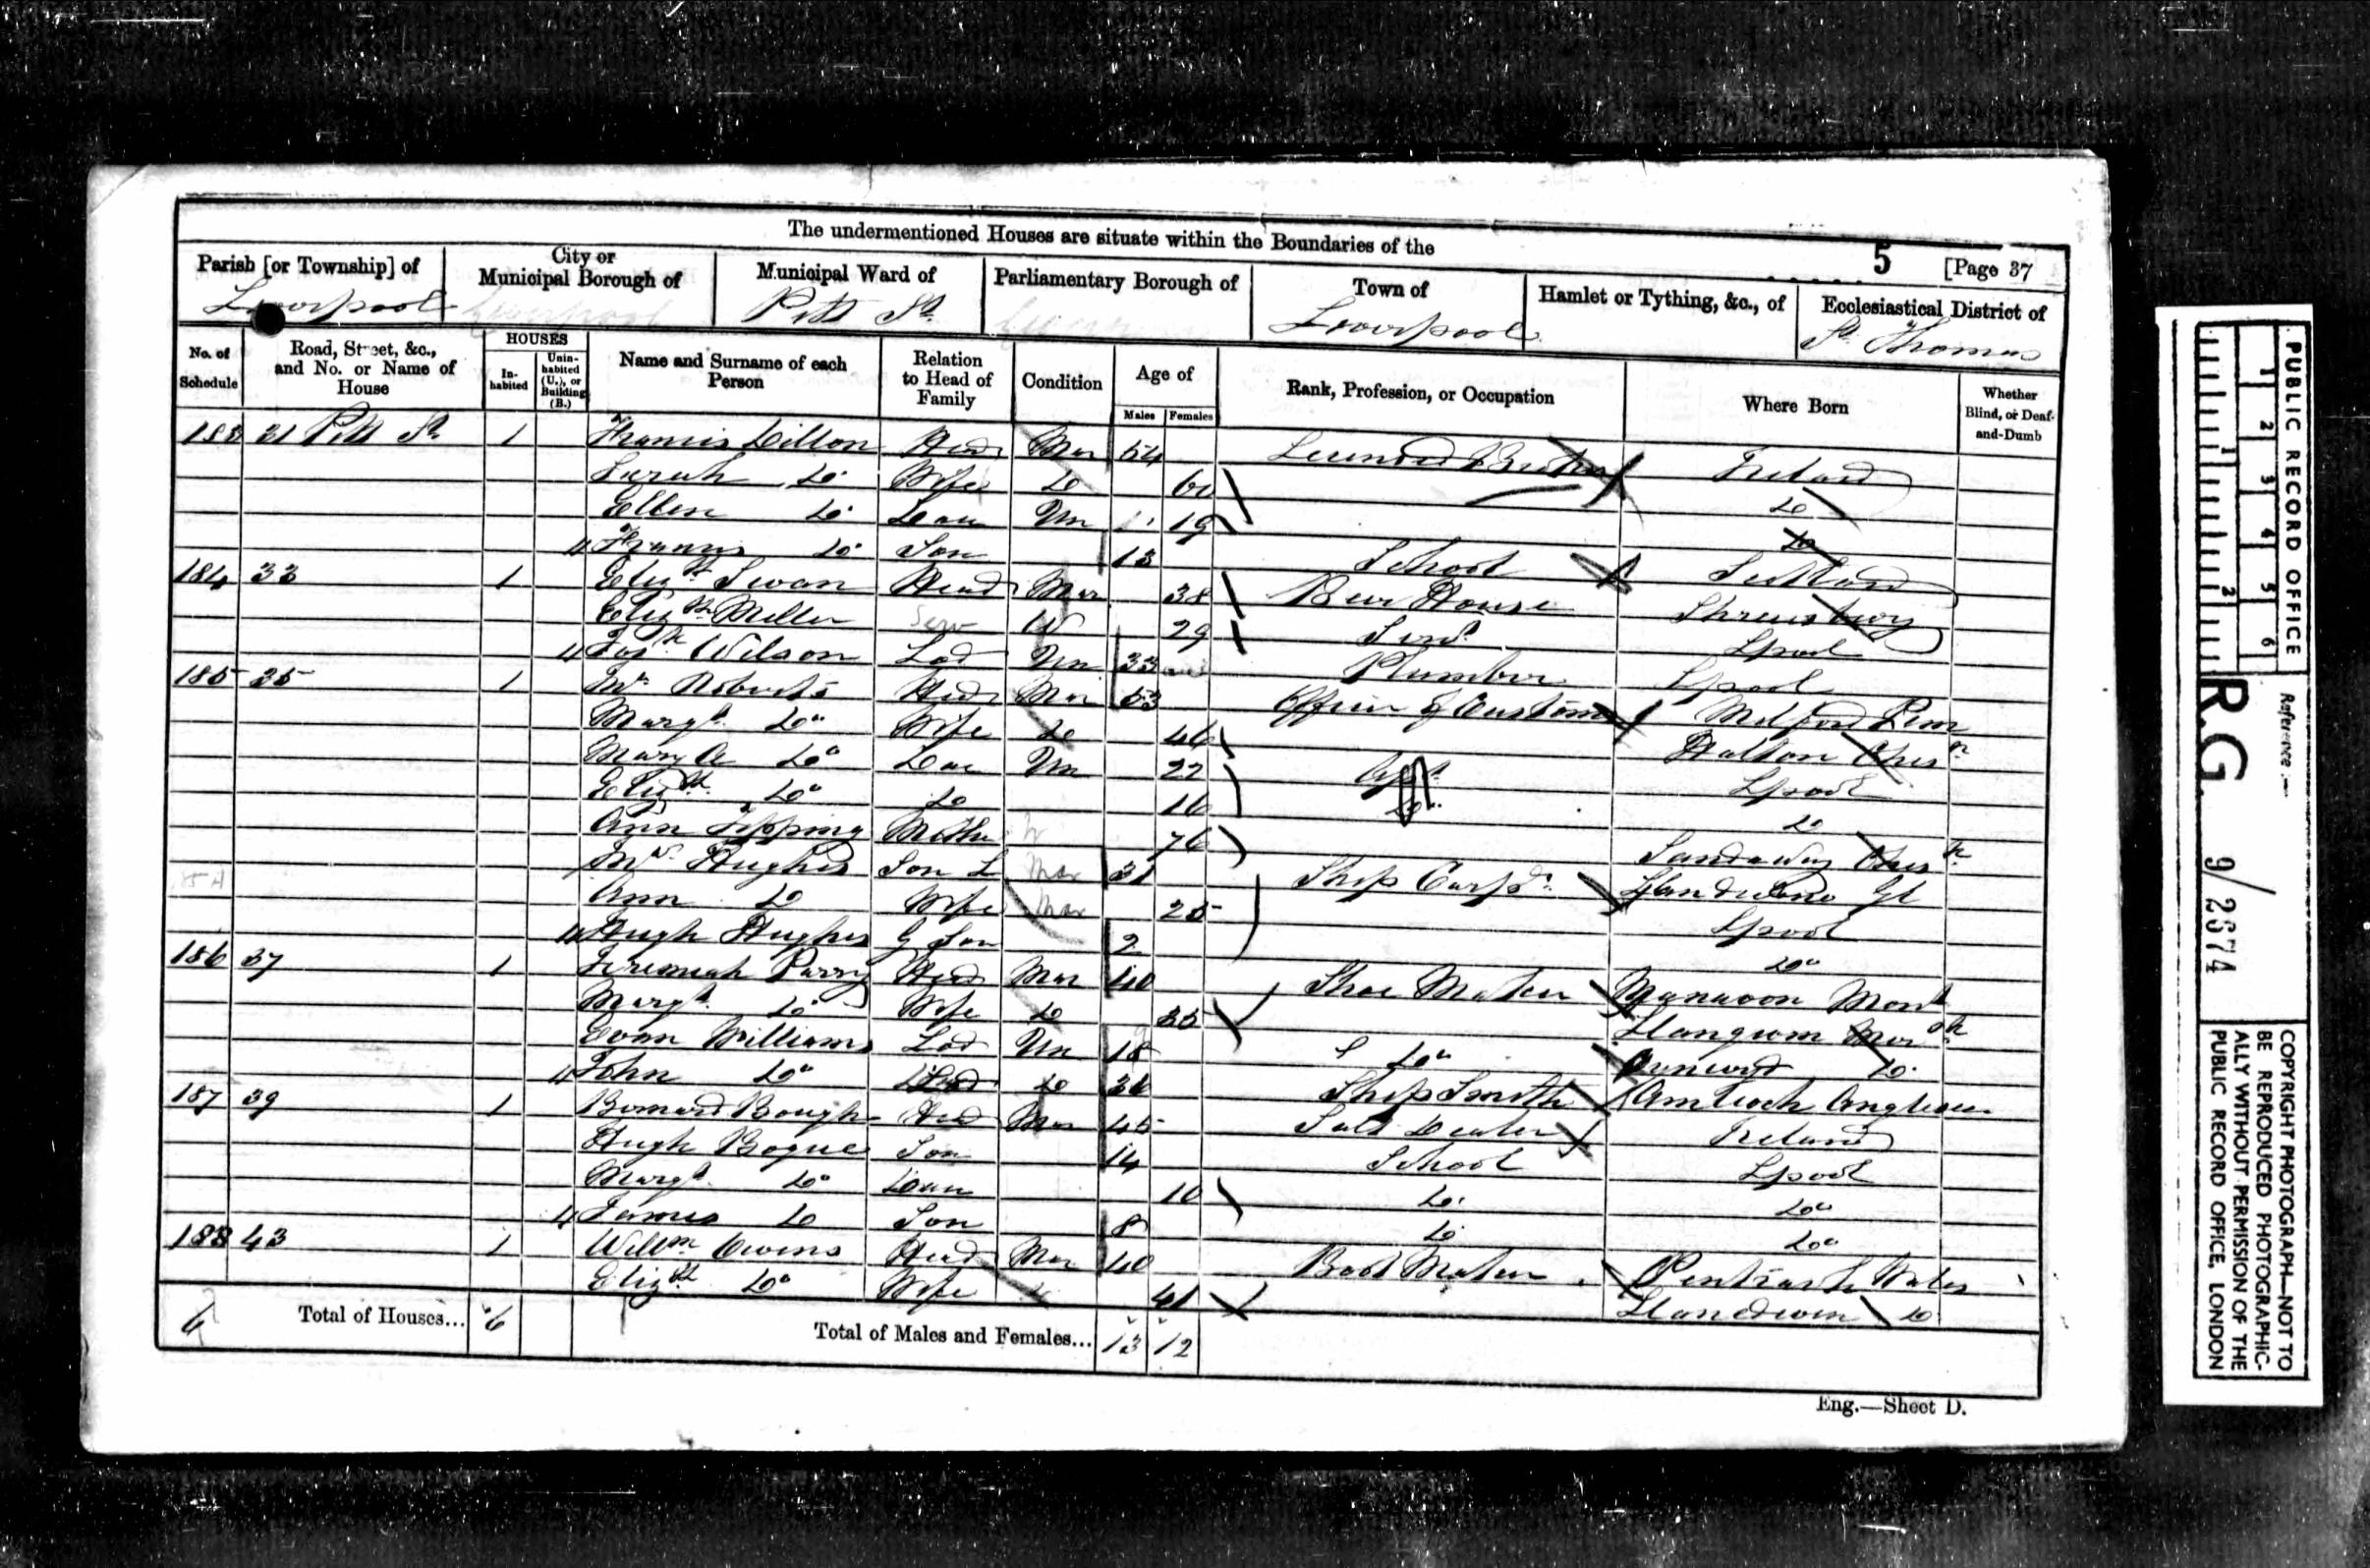 The undermentioned Houses are situate within the Boundaries of the
5 [Page 37
Parish [or Township] of
Liverpool
City or Municipal Borough of
Liverpool
Municipal Ward of
Pitt St
Parliamentary Borough of
Town of
Liverpool
Hamlet or Tything, &c., of
Ecclesiastical District of
St Thomas
No. of Schedule
Road, Street, &c., and No. or Name of House
HOUSES
Inhabited
Uninhabited (U.), or Building (B.)
Name and Surname of each Person
Relation to Head of Family
Condition
Age of
Males Females
Rank, Profession, or Occupation
Where Born
Whether Blind, or Deaf-and-Dumb
183 31 Pitt St 1 Francis Dillon Head Mar 54 Ireland
Sarah Do Wife Do Do
Ellen Do Dau Un 19 Do
Francis Do Son 13 School Scotland
184 33 1 Elizth Swan Head Mar 38 Beer House Shrewsbury
Elizth Miller Serv W 29 Servt Lpool
Wilson Lod Un 33 Plumber Lpool
185 35 1 Wm Roberts Head Mar 53 Officer of Customs Milford Pem
Margt Do Wife Do 46 Halton
Mary A Do Dau Un 22 Lpool
Elizth Do Do 16 Do Do
Ann Tipping Mother W 76 Sandaway
Wm Hughes Son L Mar 31 Ship Carpr
Ann Do Wife Mar 25 Lpool
Hugh Hughes G Son 2 Do
186 37 1 Jeremiah Parry Head Mar 40 Shoe Maker Manavon Mont
Margt Do Wife Do 35 Llangwm
Evan Williams Lod Un 18 Do Do
John Do Lod Do Ship Smith Amlwch Anglesea
187 39 1 Bernard Bough Head Mar 45 Salt Dealer Ireland
Hugh Bogue Son 14 School Lpool
Margt Do Daur 10 Do Do
James Do Son 8 Do Do
188 43 1 Willm Owens Head Mar 40 Boot Maker Wales
Elizth Do Wife 41 Do
6 Total of Houses... 6 Total of Males and Females... 13 12
Eng.—Sheet D.
PUBLIC RECORD OFFICE
1 2 3 4 5 6
1 2
Reference :—
R.G. 9/2674
COPYRIGHT PHOTOGRAPH—NOT TO
BE REPRODUCED PHOTOGRAPHIC-
ALLY WITHOUT PERMISSION OF THE
PUBLIC RECORD OFFICE, LONDON